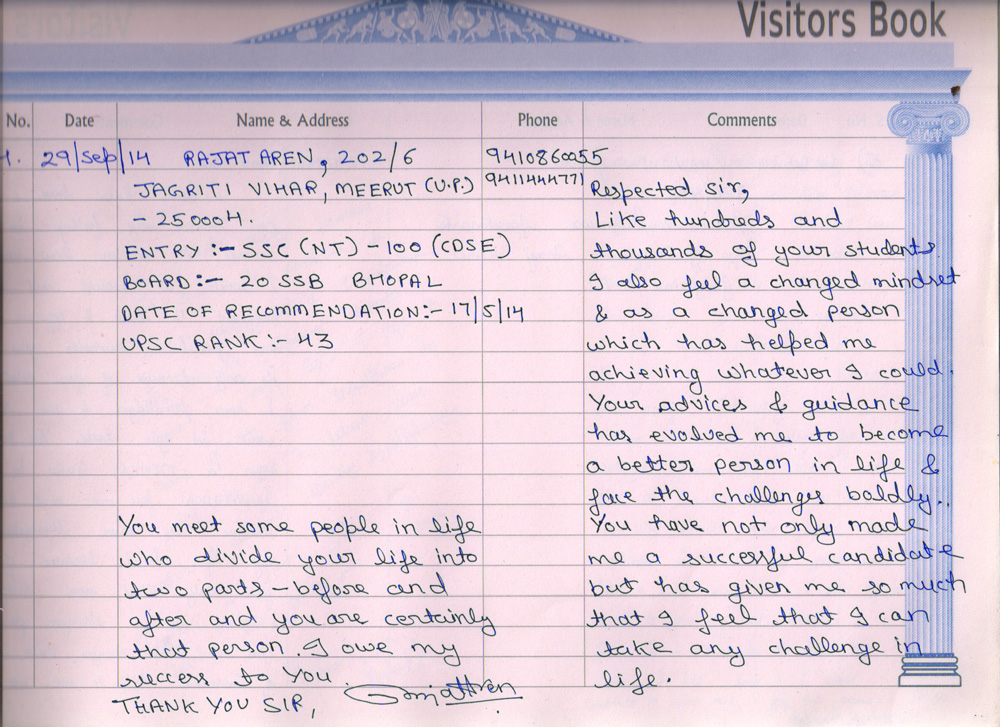 Visitors Book
No. Date Name & Address Phone Comments
1. 29/Sep/14 RAJAT AREN, 202/6 9410860055
JAGRITI VIHAR, MEERUT (U.P.) 9411444771
- 250004.
ENTRY :- SSC (NT) - 100 (CDSE)
BOARD :- 20 SSB BHOPAL
DATE OF RECOMMENDATION:- 17/5/14
UPSC RANK :- 43
You meet some people in life
who divide your life into
two parts - before and
after and you are certainly
that person. I owe my
success to You.
THANK YOU SIR,
Respected sir,
Like hundreds and
thousands of your students
I also feel a changed mindset
& as a changed person
which has helped me
achieving whatever I could.
Your advices & guidance
has evolved me to become
a better person in life &
face the challenges boldly..
You have not only made
me a successful candidate
but has given me so much
that I feel that I can
take any challenge in
life.